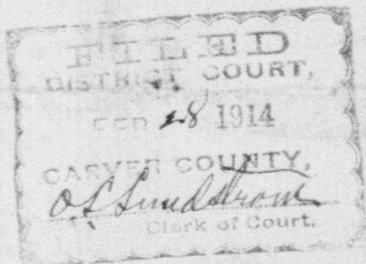 FILED
DISTRICT COURT,
FEB 28 1914
CARVER COUNTY,
O. S. Sundstrom
Clerk of Court.